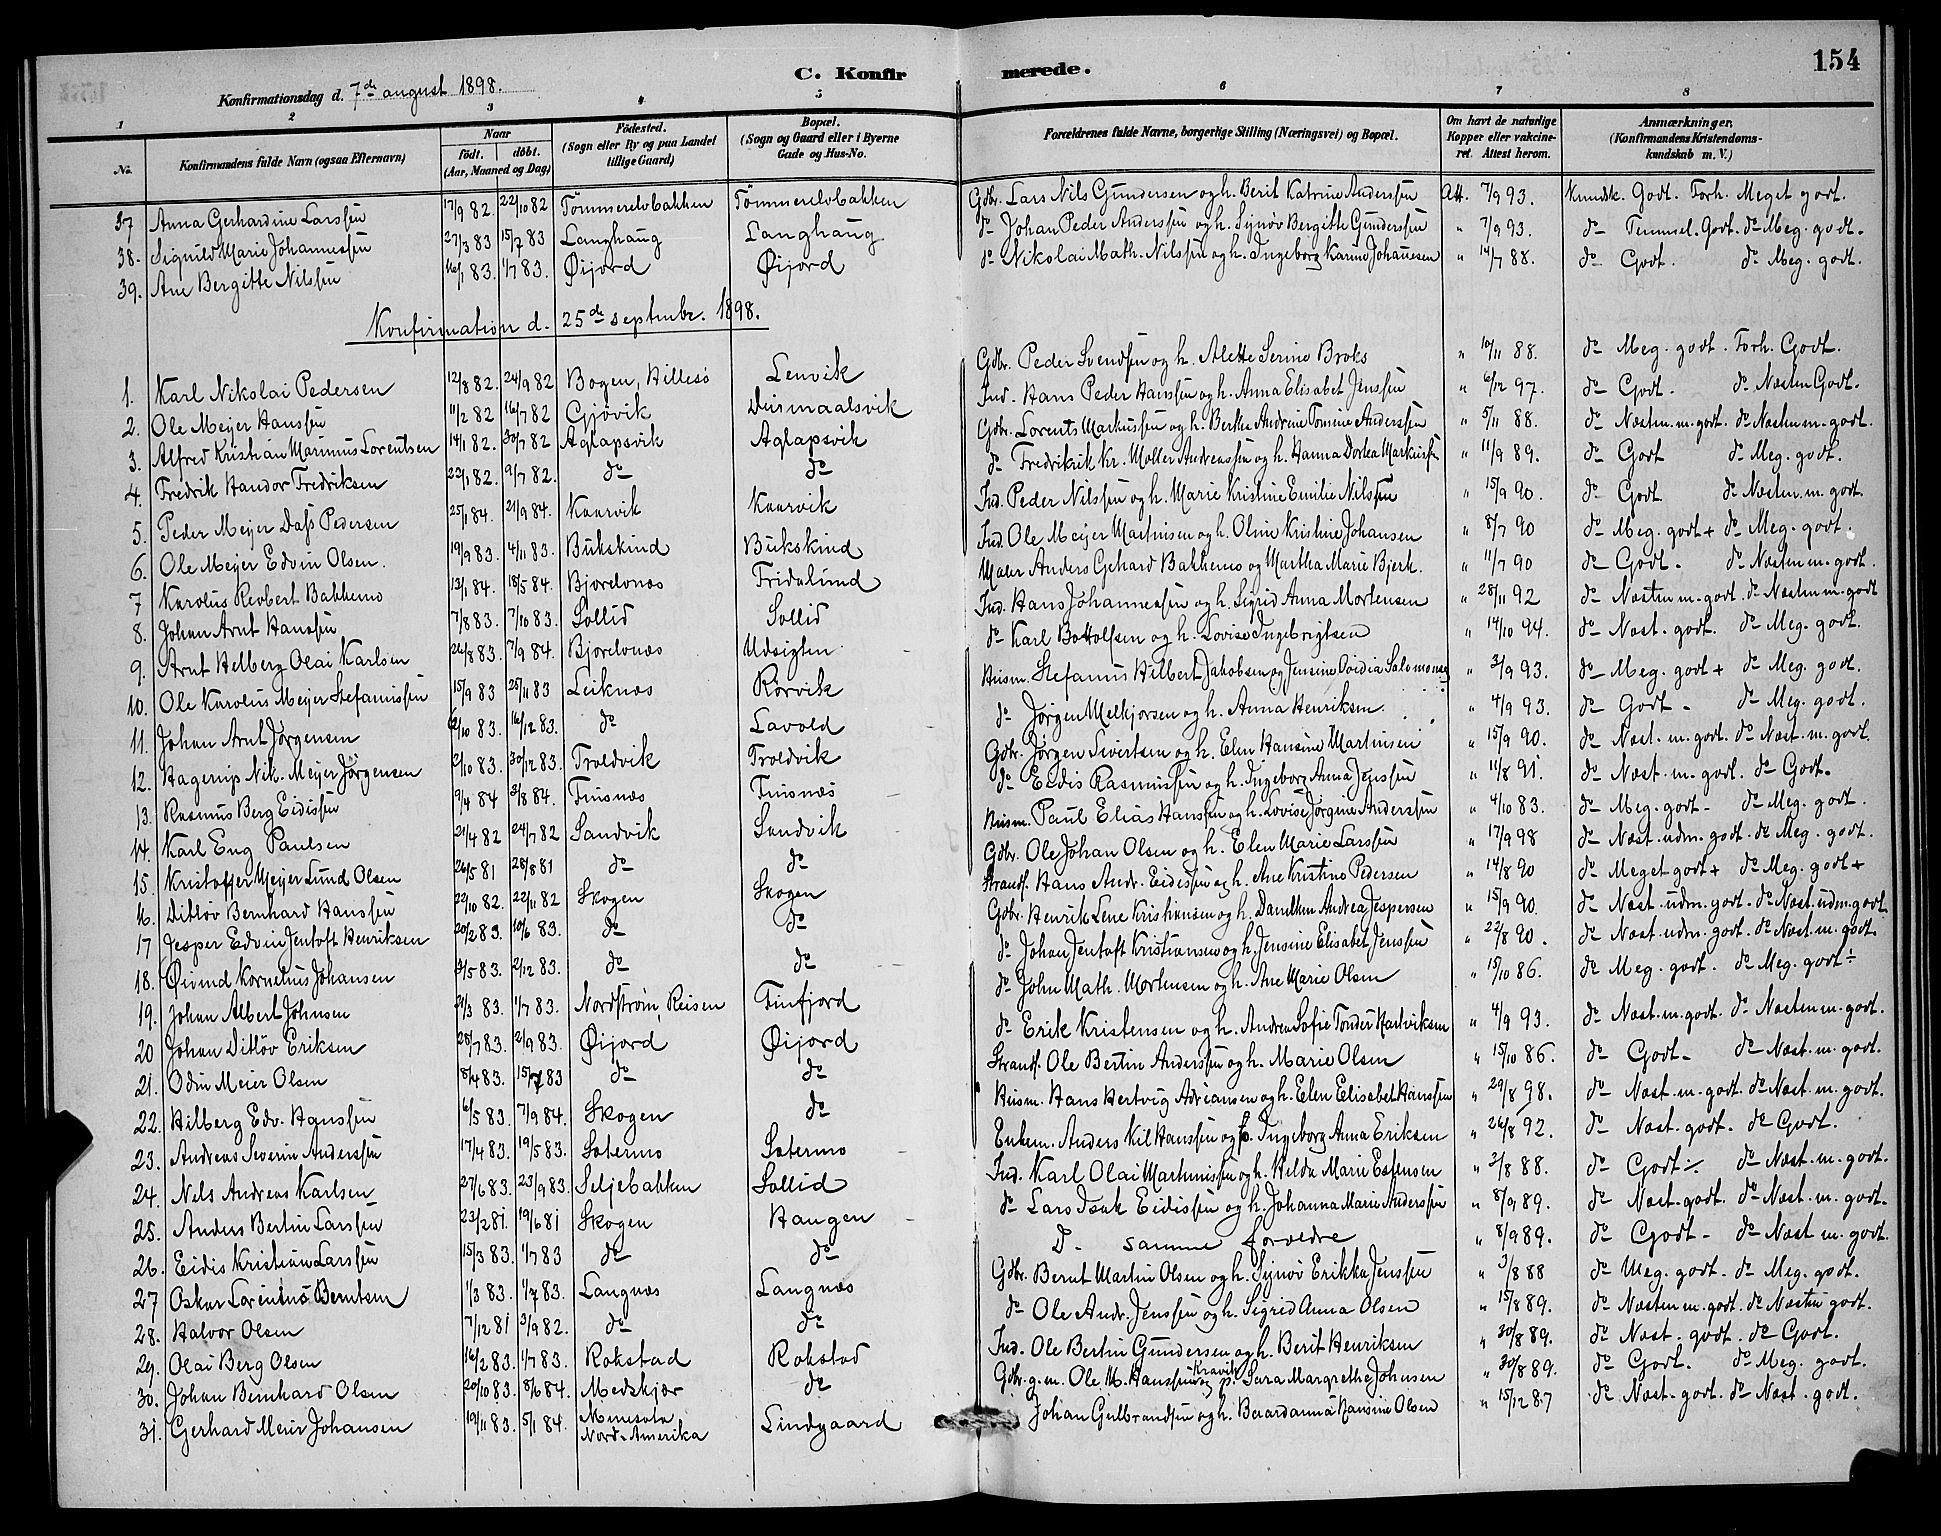 154
C. Konfirmerede.
Konfirmationsdag d. 7de august 1898.
1 2 3 4 5 6 7 8
No. Konfirmandens fulde Navn (ogsaa Efternavn) Naar födt. döbt. (Aar, Maaned og Dag) Födested. (Sogn eller By og paa Landet tillige Gaard) Bopæl. (Sogn og Gaard eller i Byerne Gade og Hus-No. Forældrenes fulde Navne, borgerlige Stilling (Næringsvei) og Bopæl. Om havt de naturlige Kopper eller vakcineret. Attest herom. Anmærkninger, (Konfirmandens Kristendomskundskab m. V.)
37 Anna Gerhardine Larssen 17/9 82. 22/10 82 Tömmerelvbakken Tömmerelvbakken Gdbr. Lars Nils Gundersen og h. Berit Katrine Anderssen Att. 7/9 93. Kundsk. Godt. Forh. Meget godt.
38. Signild Marie Johannessen 27/3 83 15/7 83 Langhaug Langhaug do Johan Peder Anderssen og h. Synöv Bergitte Gunderssen " 7/9 93. do Temmel. Godt. do Meg. godt.
39. Ane Bergitte Nilssen 16/1 83. 1/7 83. Øijord Øijord do Nikolai Math. Nilssen og h. Ingeborg Karine Johanesen " 14/7 88. do Godt. do Meg. godt.
Konfirmation d. 25de septembr. 1898.
1. Karl Nikolai Pedersen 12/8 82. 24/9 82 Bogen, Hillesö Lenvik Gdbr. Peder Svendsen og h. Alette Serine Broks " 10/11 88. do Meg. godt. Forh. Godt.
2. Ole Meyer Hanssen 11/2 82 16/7 82 Gjövik Dusmaalsvik Ind. Hans Peder Hanssen og h. Anna Elisabet Jenssen " 6/12 97. do Godt. do Næsten Godt.
3. Alfred Kristian Marinus Lorentsen 14/1 82. 30/7 82 Aglapsvik Aglapsvik Gdbr. Lorents Markussen og h. Berthe Andrine Tomine Anderssen " 5/11 88. do Næsten m. godt. do Næsten m. godt.
4. Fredrik Handor Fredriksen 22/1 82. 9/7 82. do do do Fredrikrik Kr. Möller Andreassen og h. Hanna Dortea Markussen " 11/9 89. do Godt do Meg. godt.
5. Peder Meyer Dass Pedersen 25/1 84. 21/9 84. Kaarvik Kaarvik Ind. Peder Nilssen og h. Marie Kristine Emilie Nilssen " 15/9 90. do Godt do Næsten m. godt.
6. Ole Meyer Edvin Olsen. 19/9 83. 4/11 83. Bukskind Bukskind Ind. Ole Meyer Martinsen og h. Oline Kristine Johansen " 8/7 90 do Meg. godt + do Meg. godt.
7 Karolus Robert Bakkemo 13/1 84. 18/5 84. Bjorelvnæs Fridalund Maler Anders Gehard Bakkemo og Martha Marie Bjerk. " 11/7 90 do Godt. do Næsten m. godt.
8. Johan Arnt Hanssen 7/8 83. 7/10 83. Sollid Sollid Ind. Hans Johannessen og h. Sigrid Anna Mortensen " 28/11 92 do Næsten m. godt. do Næsten m. godt
9. Arnt Helberg Olai Karlsen 26/8 83. 7/9 84. Bjorelvnæs Udsigten do Karl Bottolfsen og h. Lovise Ingebrigtsen " 14/10 94. do Næst. godt. do Meg. godt.
10. Ole Karolus Meyer Stefanussen 15/9 83 25/11 83 Leiknæs Rörvik Husm. Stefanus Hilbert Jakobsen og Jensine Ovidia Salomonsen " 3/9 93. do Meg. godt + do Meg. godt.
11. Johan Arnt Jörgensen 12/10 83. 16/12 83. do Lavold do Jörgen Melkjorsen og h. Anna Henriksen. " 4/9 93. do Godt - do Meg. godt.
12. Hagerup Nik. Meyer Jörgensen 2/10 83. 30/12 83. Troldvik Troldvik Gdbr. Jörgen Sivertsen og h. Elen Hansine Martinsen " 15/9 90. do Næst. m. godt. do Næst. m. godt.
13. Rasmus Berg Eidissen 9/4 84 3/8 84. Finsnæs Finsnæs do Eidis Rasmussen og h. Ingeborg Anna Jenssen " 11/8 91. do Næst. m. godt. do Godt.
14. Karl Eng Paulsen 21/4 82 24/7 82 Sandvik Sandvik Husm. Paul Elias Hanssen og h. Lovise Jörgine Anderssen " 4/10 83. do Meg. godt - do Meg. godt.
15. Kristoffer Meyer Lund Olsen 26/5 81 28/8 81 do do Gdbr. Ole Johan Olsen og h. Elen Marie Larssen " 17/9 98 do Næst. udm. godt. do Meg. godt.
16. Ditlöv Bernhard Hanssen 22/10 82. 22/11 82 Skogen Skogen Strands. Hans Andr. Eidissen og h. Ane Kristine Pedersen " 14/8 90 do Meget godt + do Meg. godt +
17 Jesper Edvin Jentoft Henriksen 20/2 83. 10/6 83. do do Gdbr. Henrik Lene Kristiansen og h. Danelken Andrea Jespersen " 15/9 90. do Næst. udm. godt. do Næst. udm. godt
18. Øivind Kornelius Johansen 9/5 83. 2/12 83. do do do Johan Jentoft Kristiansen og h. Jensine Elisabet Jenssen " 22/8 90. do Næst. udm. godt. do Næst. m. godt.
19. Johan Albert Johnsen 24/3 83. 1/7 83. Nordströn, Reisen Finfjord do John Math. Mortensen og h. Ane Marie Olsen " 15/10 86. do Meg. godt. do Meg. godt ÷
20 Johan Ditlöv Eriksen 28/7 83. 2/9 83. Øijord Øijord do Erik Kristensen og h. Andrea Sofie Tonder Hartviksen " 4/9 93. do Næst. m. godt. do Næsten m. godt.
21. Odin Meier Olsen 8/4 83. 15/7 83 do do Strands. Ole Bertin Anderssen og h. Marie Olsen " 15/10 86. do Godt - do Næst. m. godt.
22. Hilberg Edv. Hanssen 6/5 83. 7/9 84. Skogen do Husm. Hans Hertvig Adriansen og h. Elen Elisabet Hanssen " 29/8 98. do Næst. m. godt. do Næst. m. godt.
23. Andreas Severin Anderssen 17/4 83. 19/5 83. Sætermo Sætermo Enkem. Anders Kil Hanssen og Ingeborg Anna Eriksen " 26/8 92. do Næst. godt. do Godt.
24. Nels Andreas Karlsen 27/6 83. 23/9 83. Seljebakken Sollid Ind. Karl Olai Martinussen og h. Hilda Marie Esfensen " 3/8 88. do Godt ÷ do Næst. m. godt.
25. Anders Bertin Larssen 23/2 81. 19/6 81 Skogen Haugen do Lars Isak Eidissen og h. Johanna Marie Anderssen " 8/9 89. do Næst. godt. do Næst. m. godt.
26. Eidis Kristian Larssen 15/3 83. 1/7 83 do do D- samme forældre " 8/9 89. do Godt - do Næst m. godt.
27 Oskar Lorentus Berntsen 1/3 83. 1/7 83. Langnæs Langnæs Gdbr. Bernt Martin Olsen og h. Synöv Erikka Jenssen " 3/8 88 do Meg. godt. do Meg. godt.
28. Halvor Olsen 7/12 81 3/9 82. do do do Ole Andr. Jenssen og h. Sigrid Anna Olsen " 15/8 89. do Næsten m. godt. do Næsten godt.
29. Olai Berg Olsen 16/2 83. 1/7 83. Rokstad Rokstad Ind. Ole Bertin Gundersen og h. Berit Henriksen " 30/8 89. do Næst. godt. do Godt.
30. Johan Bernhard Olsen 20/10 83. 8/6 84. Medskjær do Gdbr. g. m. Ole M. Hanssen Kravik og p. Sara Margrethe Johnsen " 30/8 89. do Godt. do Meg. godt.
31. Gerhard Meier Johansen 19/11 83. 5/1 84. Minesota Nord-Amerika Lindgaard Johan Gulbrandsen og h. Berardanna Hansine Olsen " 15/12 87 do Næst. godt. do Næst. godt.